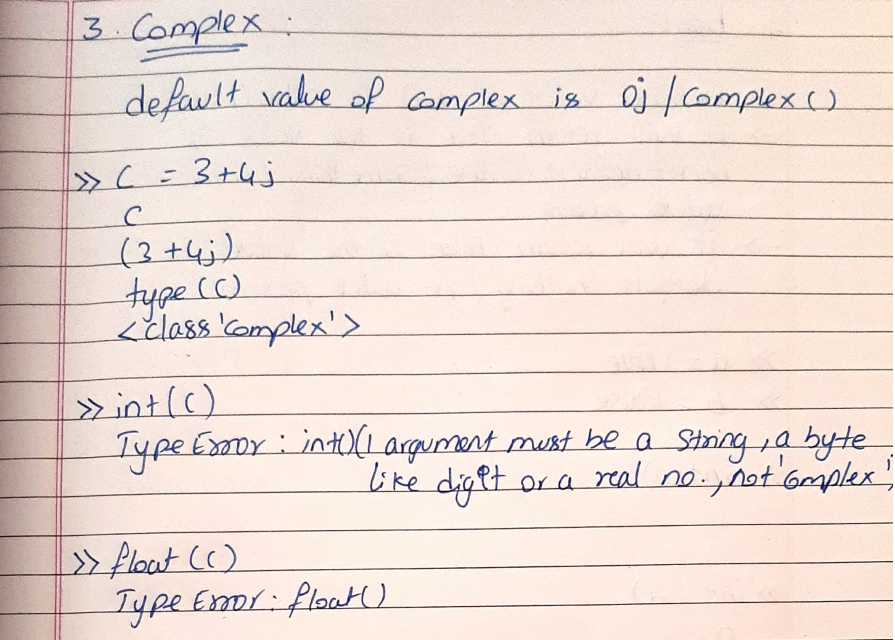 3. Complex :
default value of complex is 0j / Complex()
>> C = 3+4j
C
(3+4j)
type(C)
<class 'Complex'>
>> int(C)
Type Error : int()(1 argument must be a String, a byte
like digit or a real no., not 'Complex',
>> float(C)
Type Error : float()